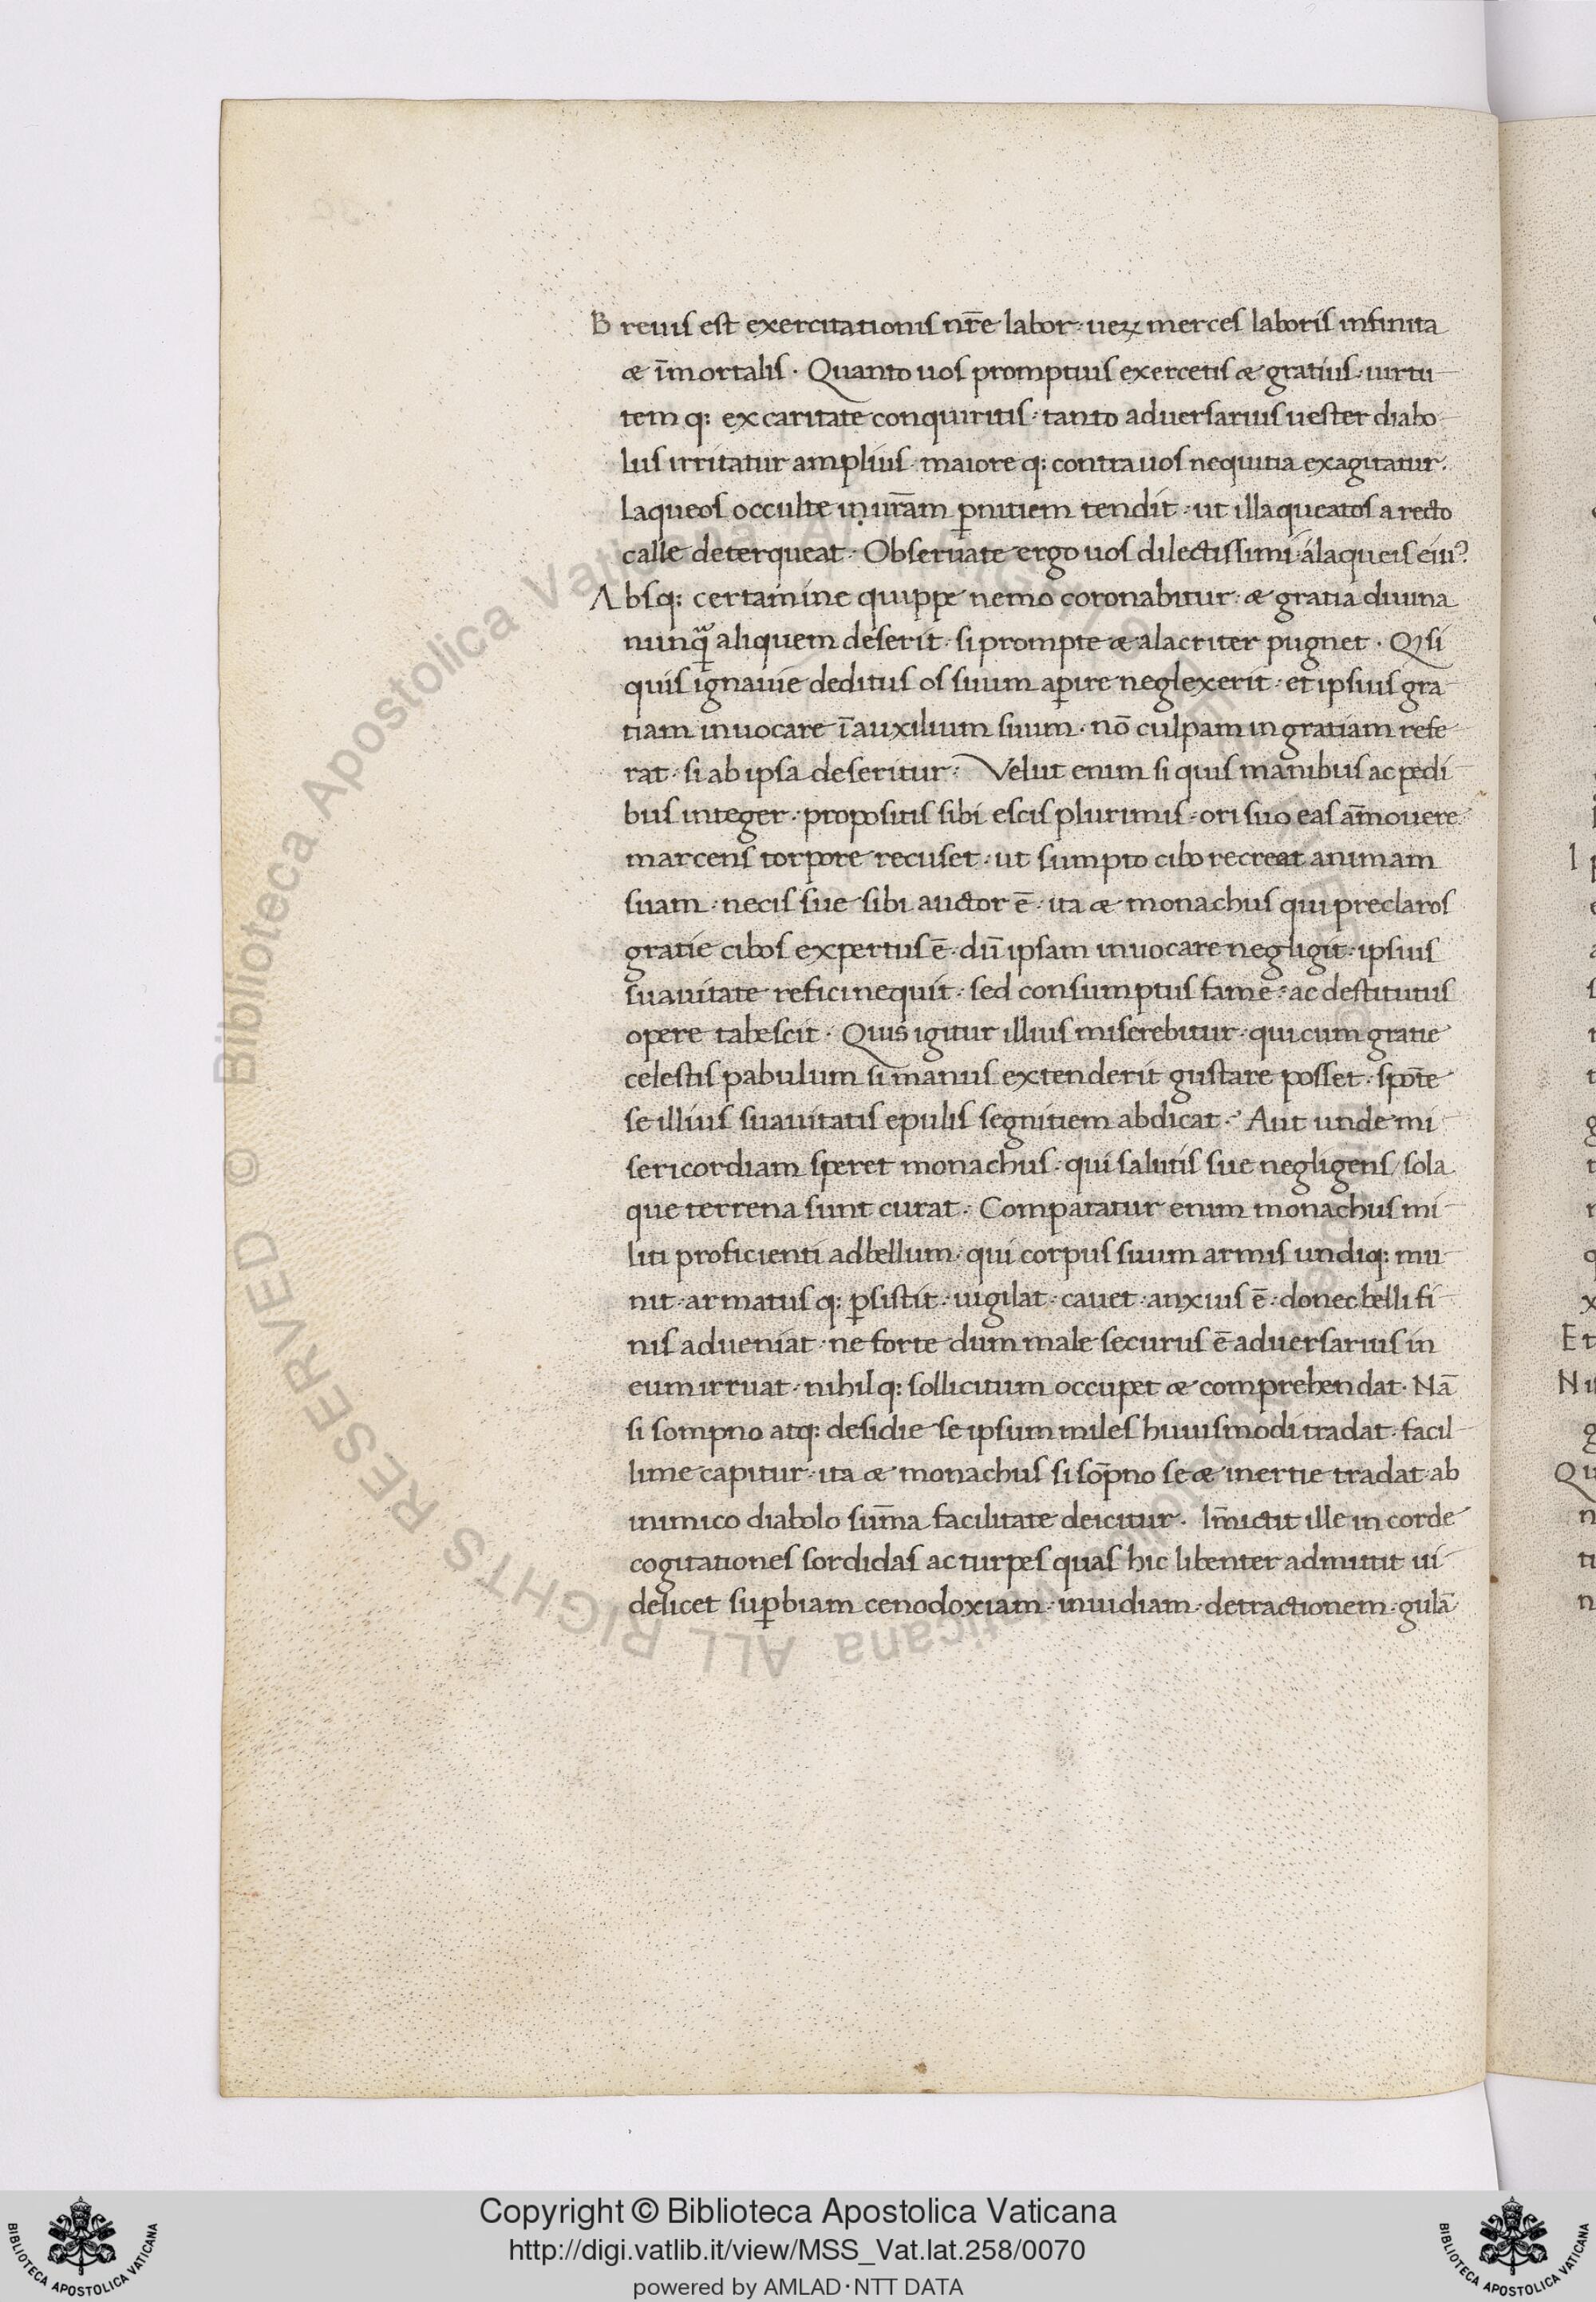 Breuis est exercitationis nr̄e labor· ueꝝ merces laboris infinita
æ īmortalis· Quanto uos promptius exercetis æ gratius· uirtu
tem q: ex caritate conquiritis· tanto aduersarius uester diabo
lus irritatur amplius· maiore q: contra uos nequitia exagitatur.
laqueos occulte in ur̄am ꝑnitiem tendit· ut illaqueatos a recto
calle deterqueat· Obseruate ergo uos dilectissimi a laqueis eiuꝰ
Absq: certamine quippe nemo coronabitur· æ gratia diuina
nunꝗᷓ aliquem deserit· si prompte æ alacriter pugnet· Qꝫ si
quis ignauie deditus os suum aꝑire neglexerit· et ipsius gra
tiam inuocare ī auxilium suum· nō culpam in gratiam refe
rat· si ab ipsa deseritur· Velut enim si quis manibus ac pedi
bus integer· propositis sibi escis plurimis· ori suo eas am̄ouere
marcens torpore recuset· ut sumpto cibo recreat animam
suam· necis sue sibi auctor ē· ita æ monachus qui preclaros
gratie cibos expertus ē· dū ipsam inuocare negligit· ipsius
suauitate refici nequit· sed consumptus fame· ac destitutus
opere tabescit· Quis igitur illius miserebitur· qui cum gratie
celestis pabulum si manus extenderit gustare posset· spōte
se illius suauitatis epulis segnitiem abdicat· Aut unde mi
sericordiam speret monachus· qui salutis sue negligens/ sola
que terrena sunt curat· Comparatur enim monachus mi
liti proficienti ad bellum· qui corpus suum armis undiq: mu
nit· armatus q: ꝑsistit· uigilat· cauet· anxius ē· donec belli fi
nis adueniat· ne forte dum male securus ē aduersarius in
eum irruat· nihil q: sollicitum occupet æ comprehendat· Nā
si sompno atq: desidie se ipsum miles huiusmodi tradat· facil
lime capitur· ita æ monachus si sōpno se æ inertie tradat· ab
inimico diabolo sum̄a facilitate deicitur· Im̄ictit ille in corde
cogitationes sordidas ac turpes quas hic libenter admittit ui
delicet suꝑbiam cenodoxiam· inuidiam· detractionem· gulā
© Biblioteca Apostolica Vaticana ALL RIGHTS RESERVED
Copyright © Biblioteca Apostolica Vaticana
http://digi.vatlib.it/view/MSS_Vat.lat.258/0070
powered by AMLAD·NTT DATA
BIBLIOTECA APOSTOLICA VATICANA
BIBLIOTECA APOSTOLICA VATICANA